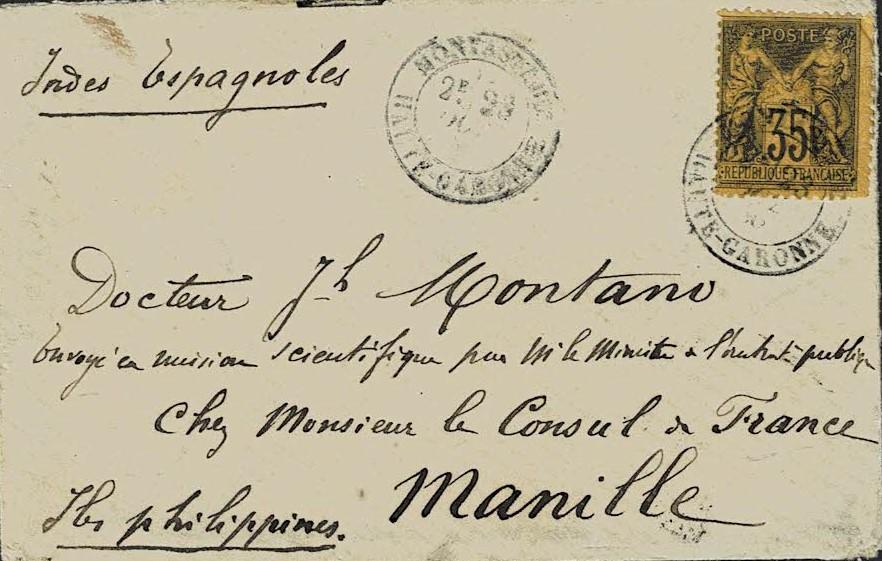 Indes Espagnoles
MONTASTRUC
2E 23
HAUTE-GARONNE
POSTE
35
REPUBLIQUE FRANCAISE
HAUTE-GARONNE
Docteur Jh Montano
Envoyé en mission scientifique par M le Ministre de l'instrn publique
Chez Monsieur le Consul de France
Manille
Iles philippines.